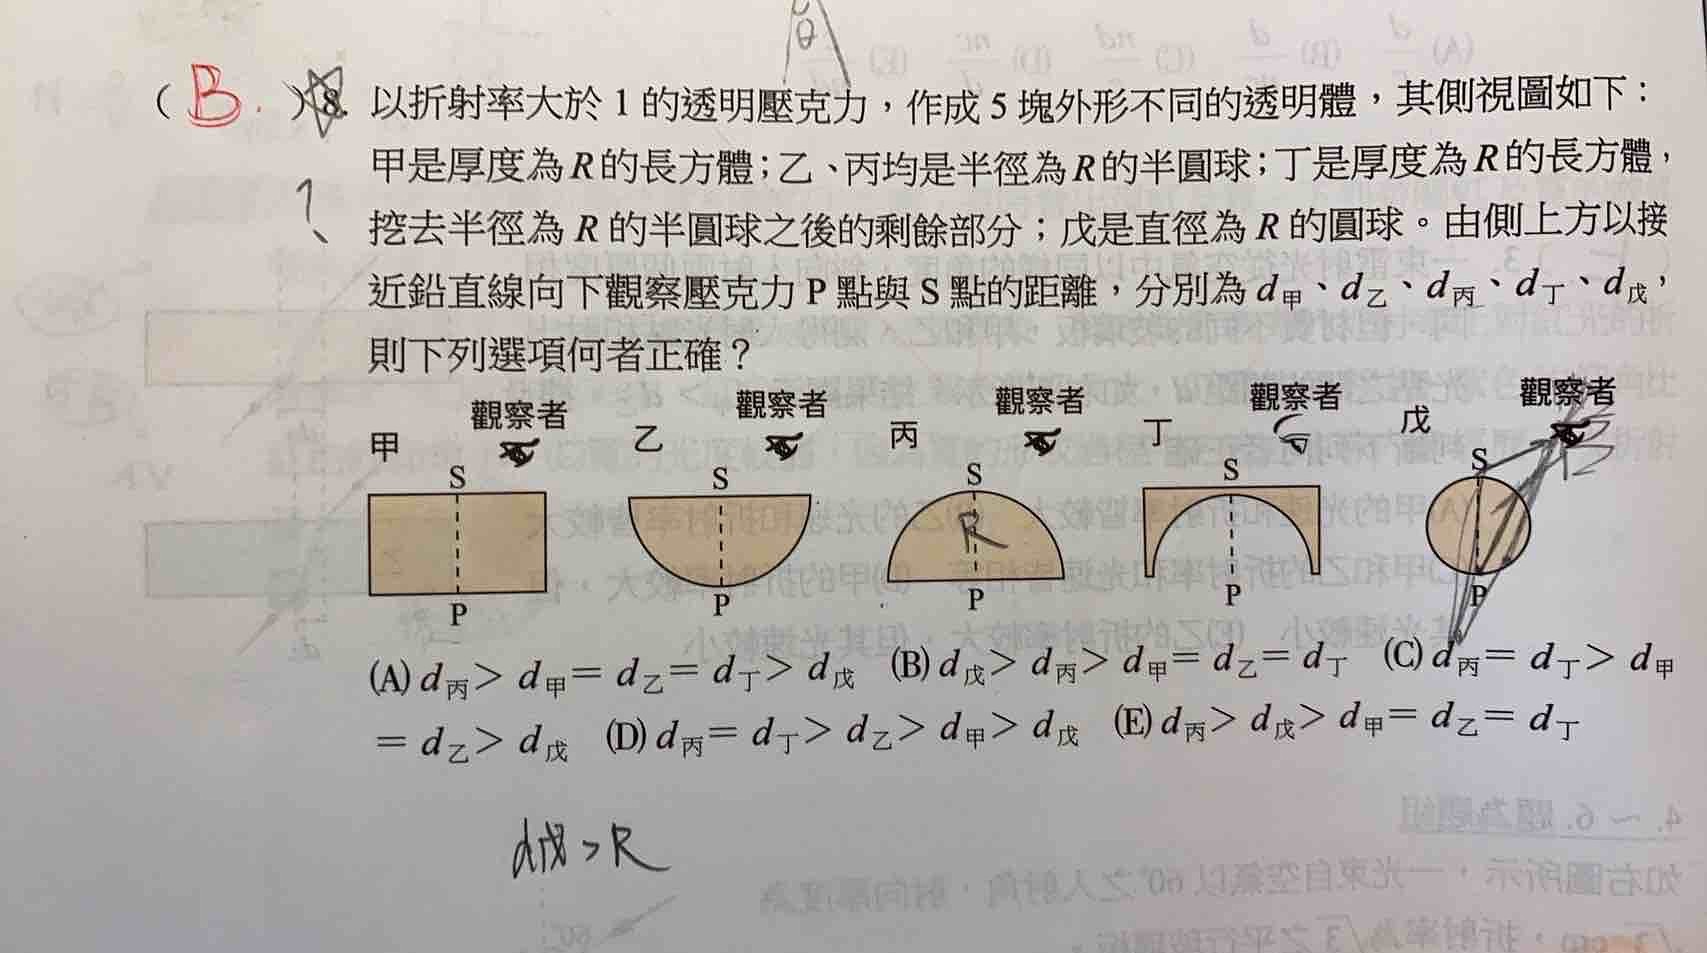 θ
( B. ) 8. 以折射率大於 1 的透明壓克力，作成 5 塊外形不同的透明體，其側視圖如下：
甲是厚度為 R 的長方體；乙、丙均是半徑為 R 的半圓球；丁是厚度為 R 的長方體，
?
挖去半徑為 R 的半圓球之後的剩餘部分；戊是直徑為 R 的圓球。由側上方以接
近鉛直線向下觀察壓克力 P 點與 S 點的距離，分別為 d甲、d乙、d丙、d丁、d戊，
則下列選項何者正確？
甲 觀察者 乙 觀察者 丙 觀察者 丁 觀察者 戊 觀察者
S S S S S
R
P P P P P
(A) d丙 > d甲 = d乙 = d丁 > d戊 (B) d戊 > d丙 > d甲 = d乙 = d丁 (C) d丙 = d丁 > d甲
= d乙 > d戊 (D) d丙 = d丁 > d乙 > d甲 > d戊 (E) d丙 > d戊 > d甲 = d乙 = d丁
> R